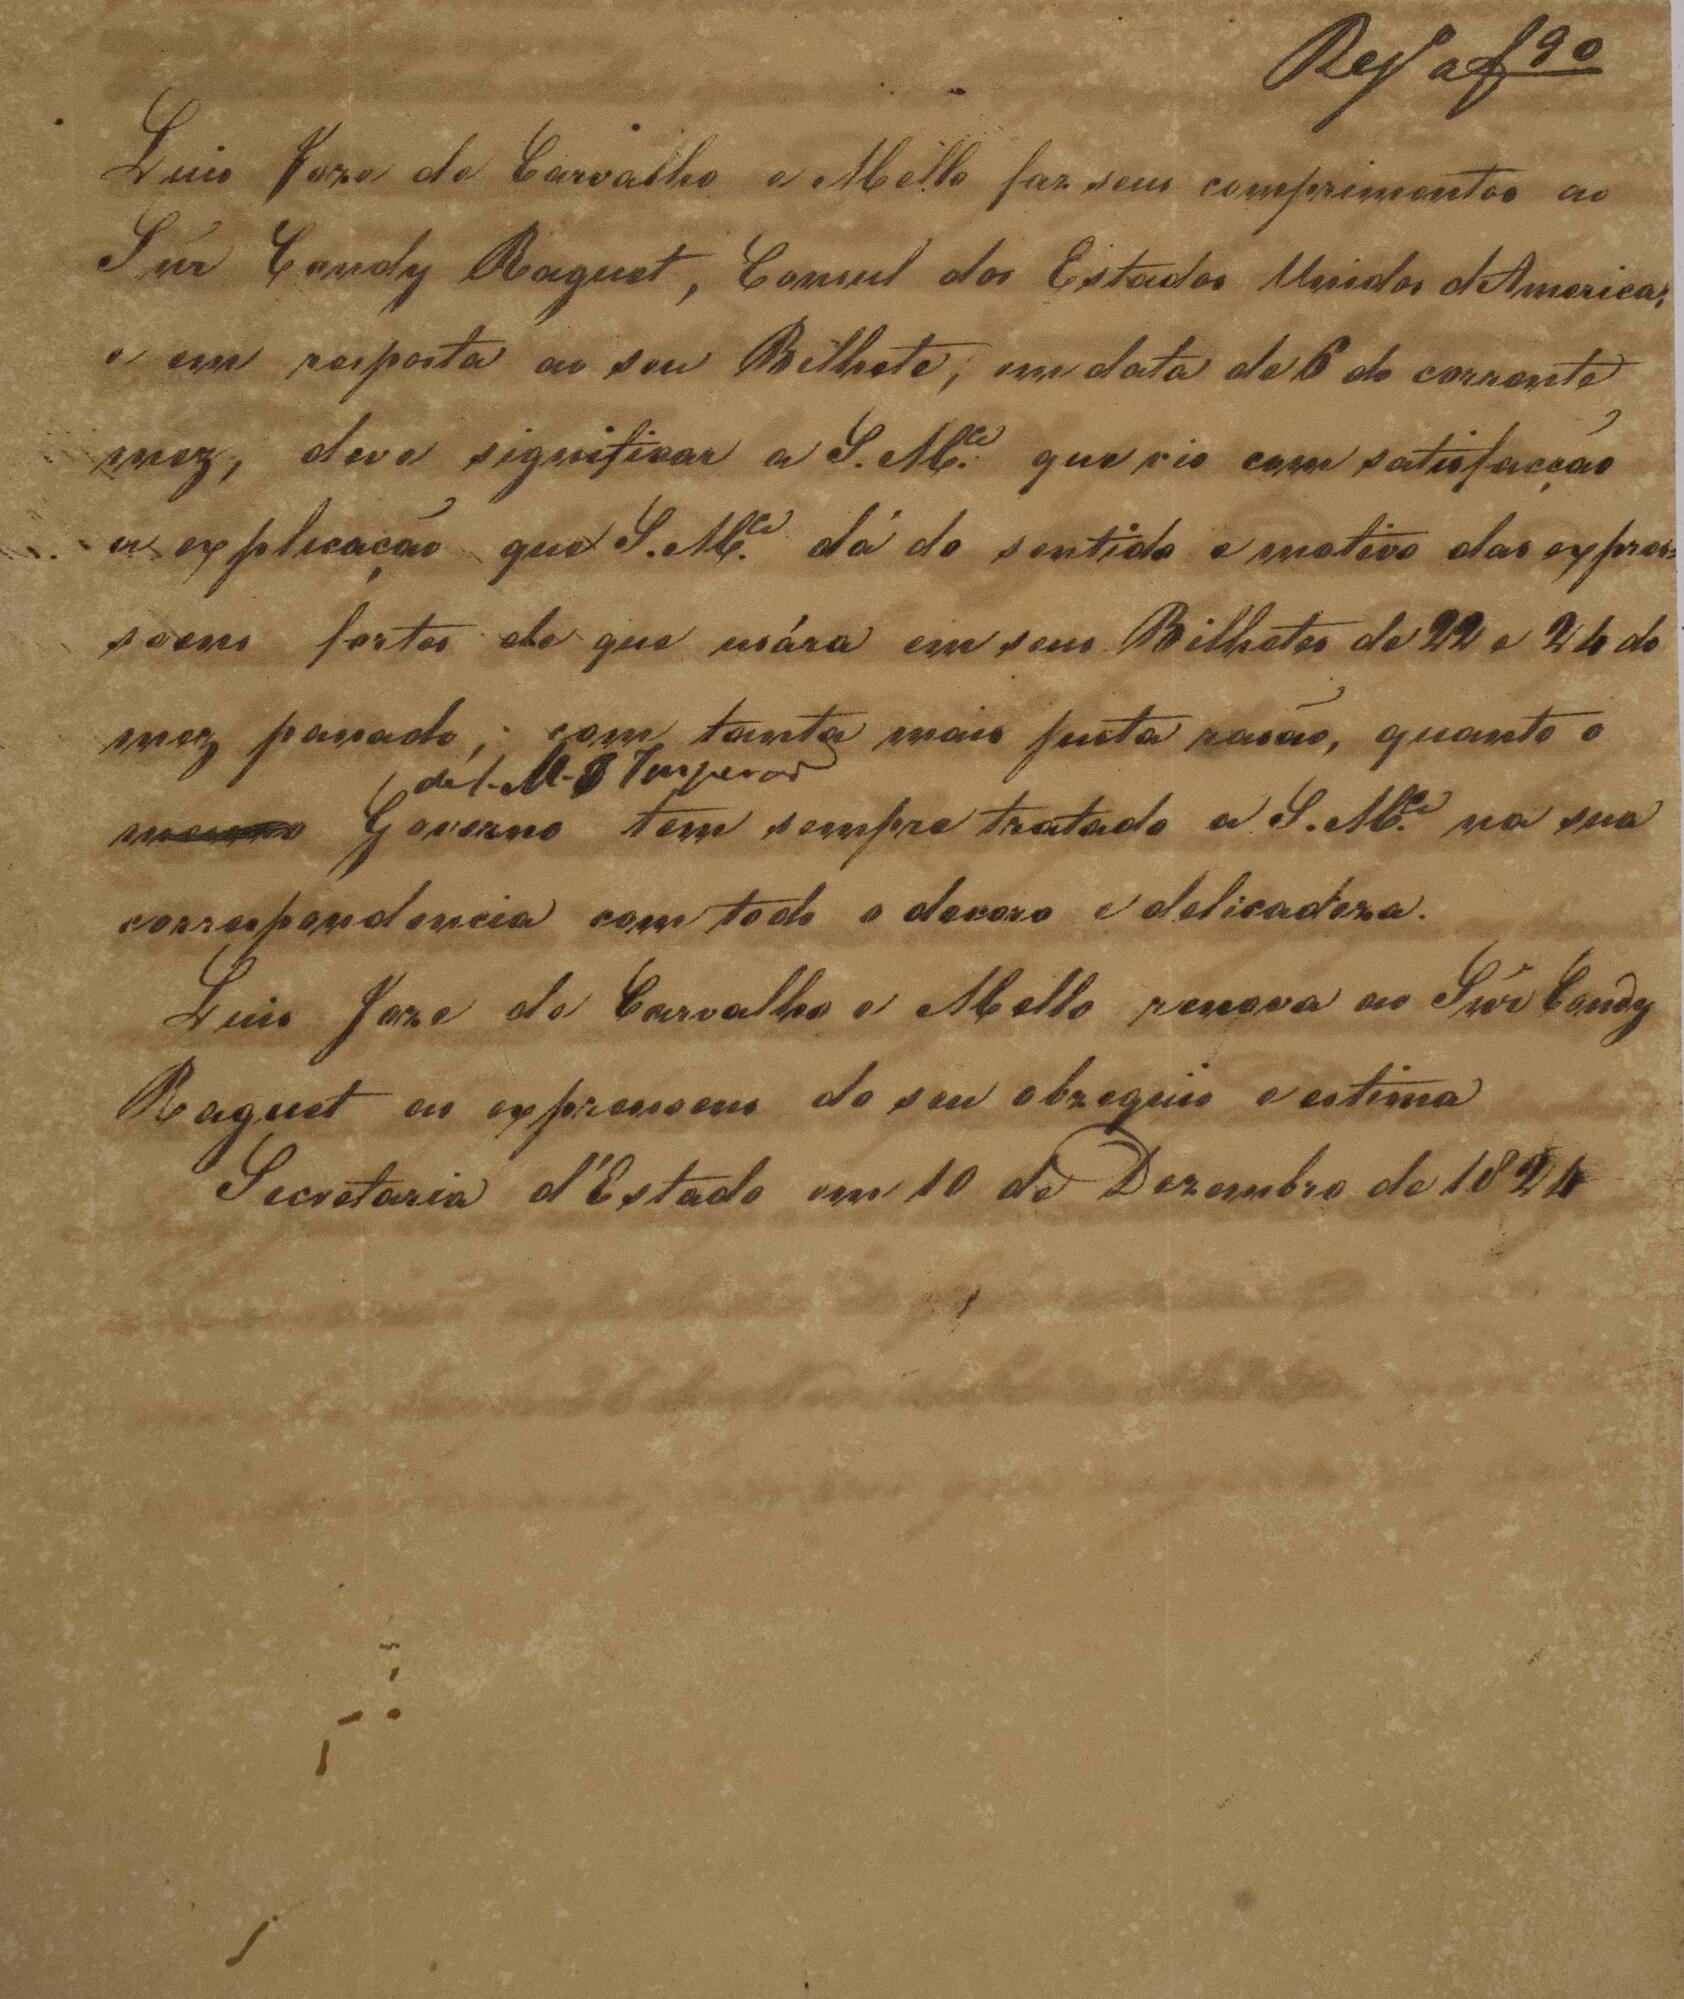 Regº a f 90
Luis Joze de Carvalho e Mello faz seus comprimentos ao
Sñr Condy Raguet, Consul dos Estados Unidos d'America,
e em resposta ao seu Bilhete, em data de 6 do corrente
mez, deve significar a S. M.ce que vio com satisfacção
a explicação que S. M.ce dá do sentido e motivo das expres=
soens fortes de que usára em seus Bilhetes de 22 e 24 do
mez passado, com tanta mais justa rasão, quanto o
de S. M. O Imperador
mesmo Governo tem sempre tratado a S. M.ce na sua
correspondencia com todo o decoro e delicadeza.
Luis Joze de Carvalho e Mello renova ao Sñr Condy
Raguet as expressoens do seu obzequio e estima
Secretaria d'Estado em 10 de Dezembro de 1824